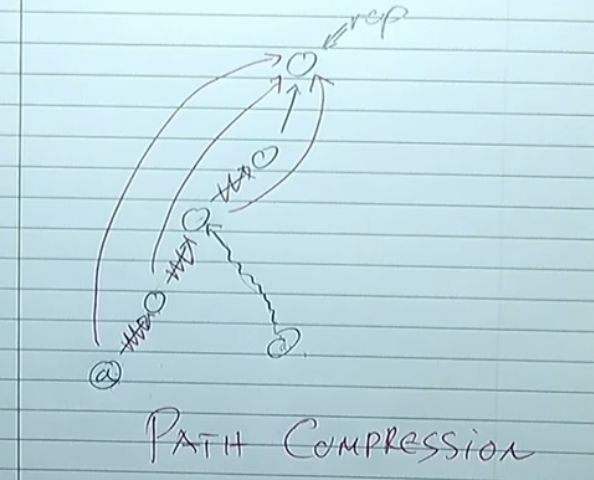 rep
a
d
PATH COMPRESSION